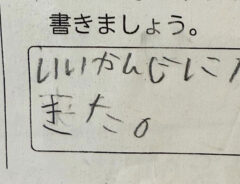 書きましょう。
いいかんじに
きた。